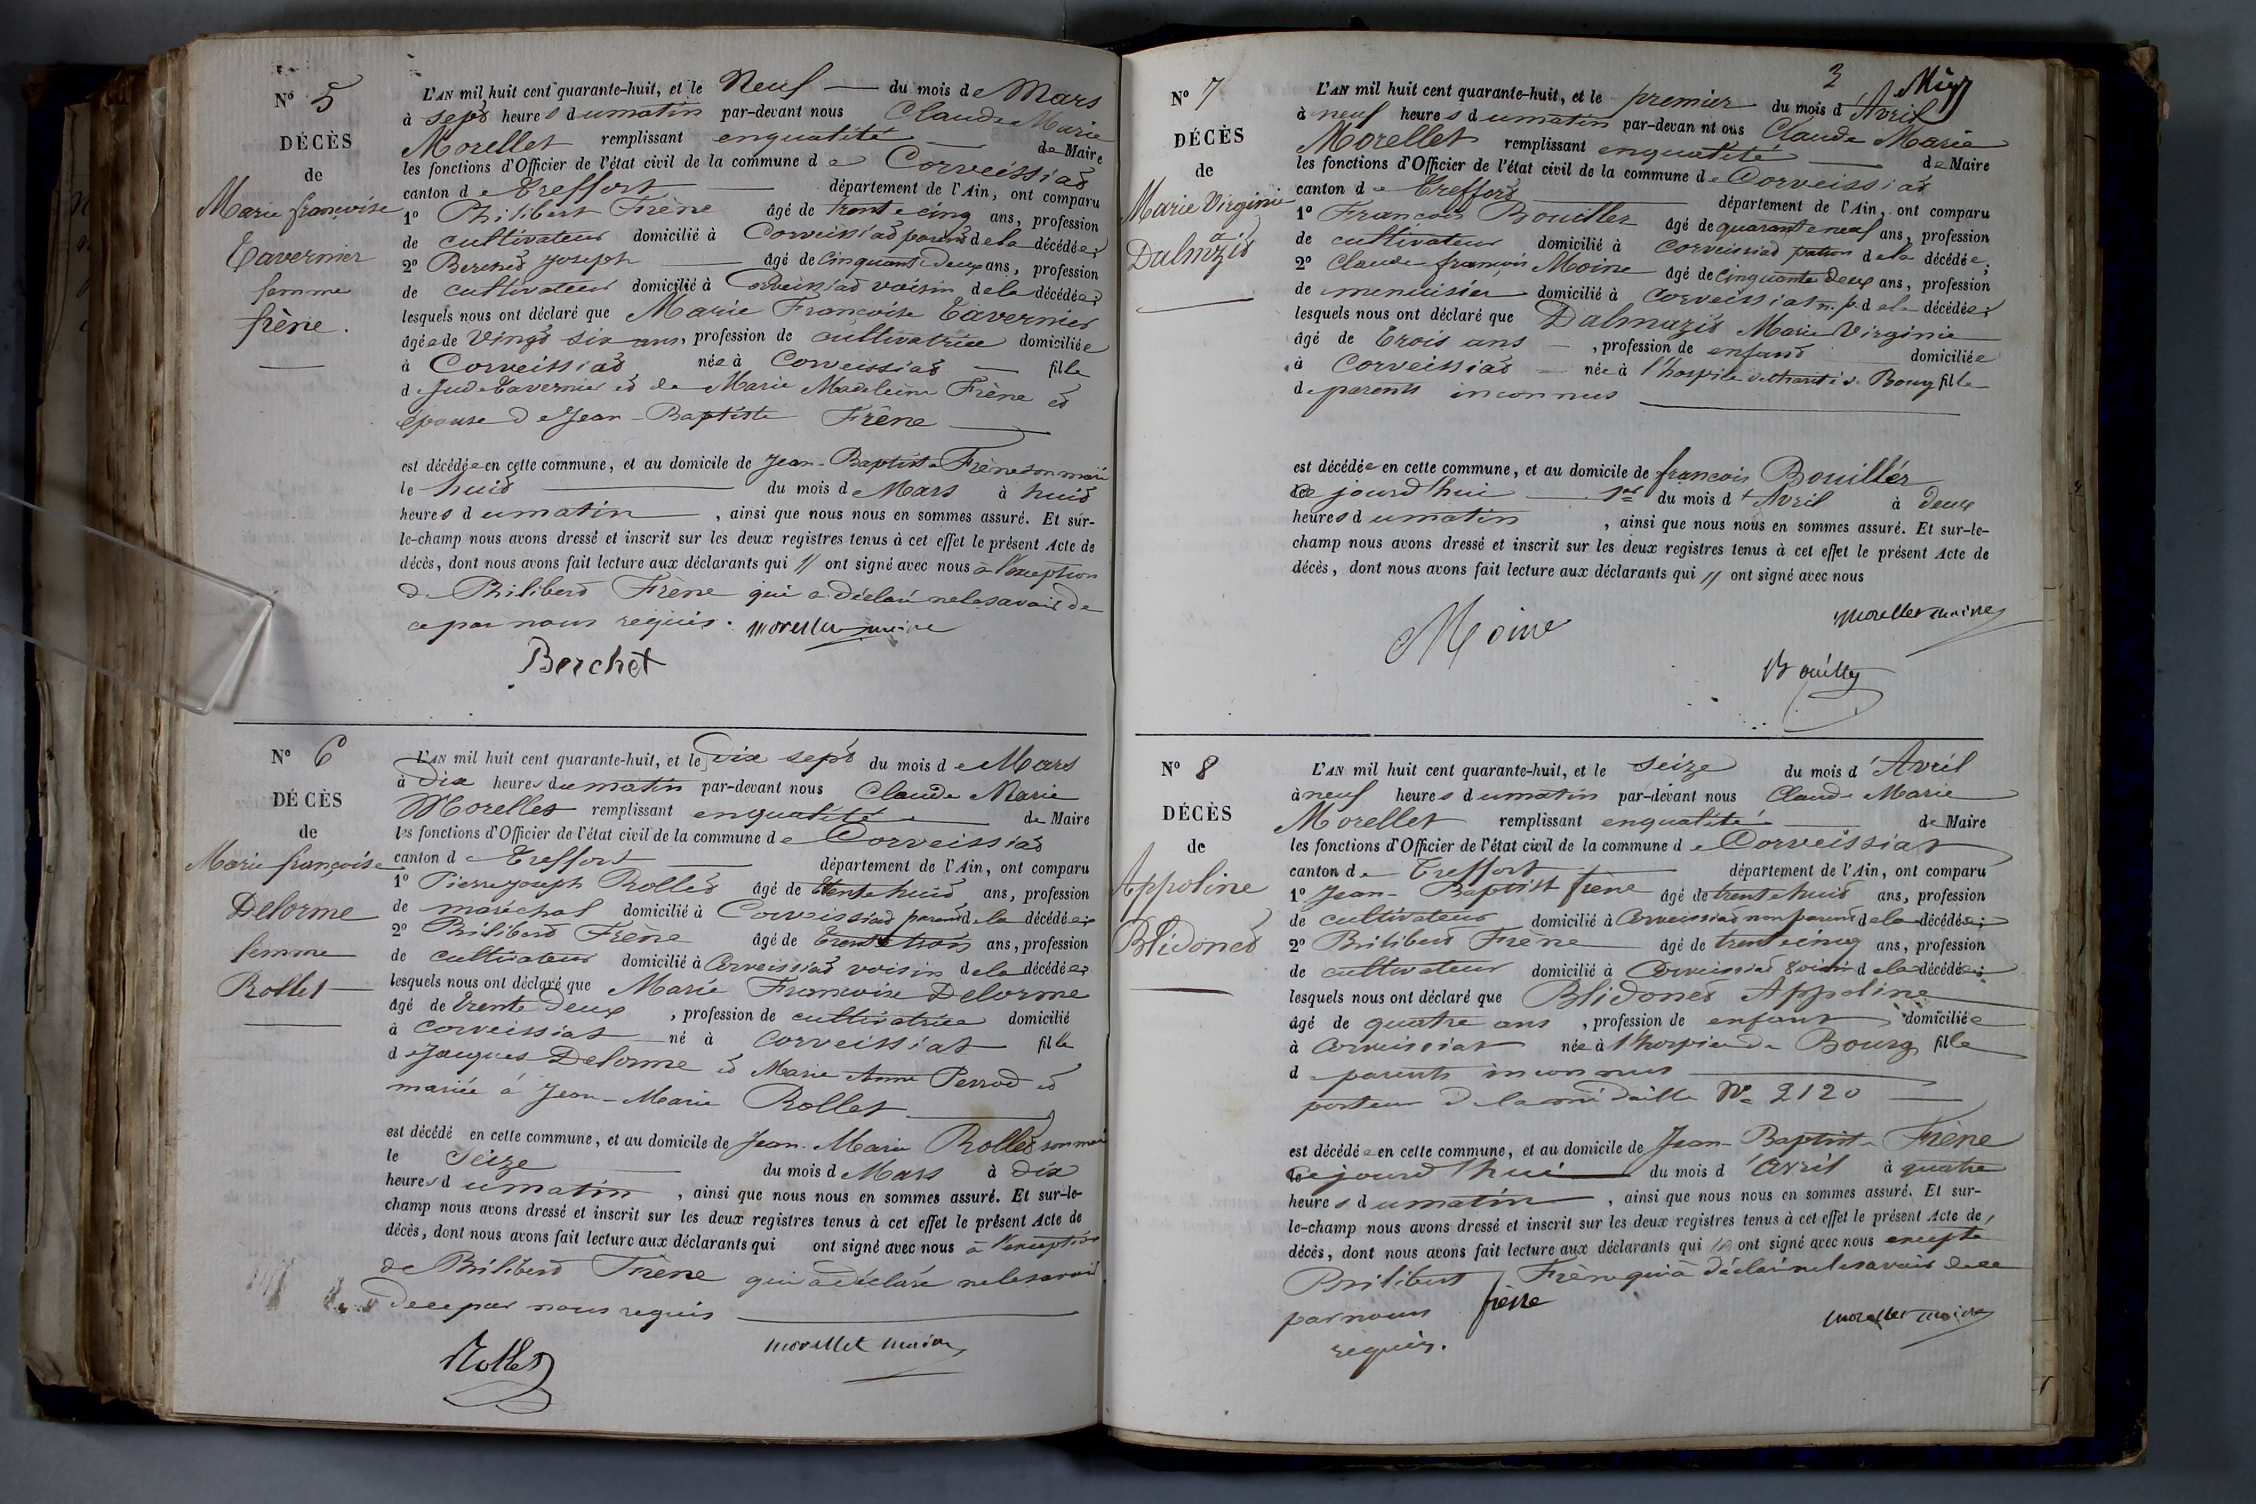 N° 5
DÉCÈS
de
Marie françoise
Tavernier
femme
frène.
L'AN mil huit cent quarante-huit, et le Neuf du mois de Mars
à sept heures du matin par-devant nous Claude Marie
Morellet remplissant en qualité de Maire
les fonctions d'Officier de l'état civil de la commune de Corveissiat
canton de Treffort département de l'Ain, ont comparu
1° Philibert Frène âgé de trente cinq ans, profession
de cultivateur domicilié à Corveissiat parent de la décédée;
2° Berchet Joseph âgé de cinquante deux ans, profession
de cultivateur domicilié à Corveissiat voisin de la décédée;
lesquels nous ont déclaré que Marie Françoise Tavernier
âgée de vingt six ans, profession de cultivatrice domiciliée
à Corveissiat née à Corveissiat fille
de Jude Tavernier et de Marie Madeleine Frène et
épouse de Jean-Baptiste Frène
est décédée en cette commune, et au domicile de Jean-Baptiste Frène son mari
le huit du mois de Mars à huit
heures du matin, ainsi que nous nous en sommes assuré. Et sur-
le-champ nous avons dressé et inscrit sur les deux registres tenus à cet effet le présent Acte de
décès, dont nous avons fait lecture aux déclarants qui // ont signé avec nous à l'exception
de Philibert Frène qui a déclaré ne le savoir de
ce par nous requis. morellet maire
Berchet
N° 6
DÉCÈS
de
Marie françoise
Delorme
femme
Rollet
L'AN mil huit cent quarante-huit, et le Dix sept du mois de Mars
à Dix heures du matin par-devant nous Claude Marie
Morellet remplissant en qualité de Maire
les fonctions d'Officier de l'état civil de la commune de Corveissiat
canton de Treffort département de l'Ain, ont comparu
1° Pierre joseph Rollet âgé de trente huit ans, profession
de maréchal domicilié à Corveissiat parent de la décédée;
2° Philibert Frène âgé de trente trois ans, profession
de cultivateur domicilié à Corveissiat voisin de la décédée;
lesquels nous ont déclaré que Marie Françoise Delorme
âgé de trente deux, profession de cultivatrice domicilié
à Corveissiat né à Corveissiat fille
de Jacques Delorme et Marie Anne Perrod et
mariée à Jean-Marie Rollet
est décédé en cette commune, et au domicile de Jean-Marie Rollet son mari
le Seize du mois de Mars à dix
heures du matin, ainsi que nous nous en sommes assuré. Et sur-le-
champ nous avons dressé et inscrit sur les deux registres tenus à cet effet le présent Acte de
décès, dont nous avons fait lecture aux déclarants qui ont signé avec nous à l'exception
de Philibert Frène qui a déclaré ne le savoir
de ce par nous requis
Rollet morellet maire
3
N° 7
DÉCÈS
de
Marie Virginie
Dalmazit
L'AN mil huit cent quarante-huit, et le premier du mois d'Avril
à neuf heures du matin par-devan nt ous Claude Marie
Morellet remplissant en qualité de Maire
les fonctions d'Officier de l'état civil de la commune de Corveissiat
canton de Treffort département de l'Ain, ont comparu
1° François Bouiller âgé de quarante neuf ans, profession
de cultivateur domicilié à Corveissiat patron de la décédée;
2° Claude françois Moine âgé de cinquante deux ans, profession
de menuisier domicilié à Corveissiat n. p. de la décédée;
lesquels nous ont déclaré que Dalmazit Marie Virginie
âgé de trois ans, profession de enfant domiciliée
à Corveissiat née à l'hospice de charité de Bourg fille
de parents inconnus
est décédée en cette commune, et au domicile de françois Bouiller
ce jourd'hui 1er du mois d'Avril à deux
heures du matin, ainsi que nous nous en sommes assuré. Et sur-le-
champ nous avons dressé et inscrit sur les deux registres tenus à cet effet le présent Acte de
décès, dont nous avons fait lecture aux déclarants qui // ont signé avec nous
Moine morellet maire
Bouiller
N° 8
DÉCÈS
de
Appoline
Blidonet
L'AN mil huit cent quarante-huit, et le seize du mois d'Avril
à neuf heures du matin par-devant nous Claude Marie
Morellet remplissant en qualité de Maire
les fonctions d'Officier de l'état civil de la commune de Corveissiat
canton de Treffort département de l'Ain, ont comparu
1° Jean-Baptist frène âgé de trente huit ans, profession
de cultivateur domicilié à Corveissiat non parent de la décédée;
2° Philibert Frène âgé de trente cinq ans, profession
de cultivateur domicilié à Corveissiat voisin de la décédée;
lesquels nous ont déclaré que Blidonet Appoline
âgé de quatre ans, profession de enfant domiciliée
à Corveissiat née à l'hospice de Bourg fille
de parents inconnus
porteur de la médaille N° 2120
est décédée en cette commune, et au domicile de Jean-Baptiste Frène
ce jourd'hui du mois d'avril à quatre
heures du matin, ainsi que nous nous en sommes assuré. Et sur-
le-champ nous avons dressé et inscrit sur les deux registres tenus à cet effet le présent Acte de
décès, dont nous avons fait lecture aux déclarants qui ont signé avec nous excepté
Philibert Frène qui a déclaré ne le savoir de ce
par nous frène morellet maire
requis.